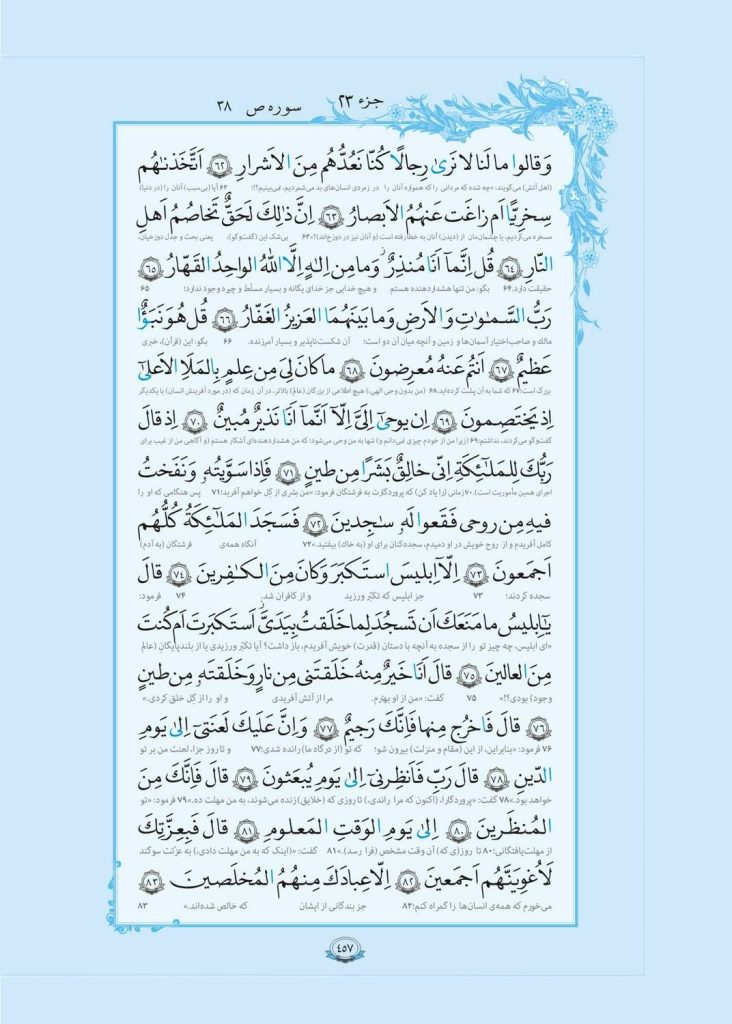 جزء ۲۳
سوره ص ۳۸
وَ قالوا ما لَنا لا نَرىٰ رِجالًا كُنّا نَعُدُّهُم مِنَ الاَشرارِ ﴿٦٢﴾ اَتَّخَذنٰهُم
(اهل آتش) می‌گویند: «چه شده که مردانی را که همواره آنان را در زمره‌ی انسان‌های بد می‌شمردیم، نمی‌بینیم؟!؛ ۶۲ آیا (بی‌سبب) آنان را (در دنیا)
سِخرِيًّا اَم زاغَت عَنهُمُ الاَبصارُ ﴿٦٣﴾ اِنَّ ذٰلِكَ لَحَقٌّ تَخاصُمُ اَهلِ
مسخره می‌کردیم، یا چشمان‌مان از (دیدن) آنان به خطا رفته است (و آنان نیز در دوزخ‌اند)؟!»۶۳ بی‌شک این (گفت‌وگو)، یعنی بحث و جدل دوزخیان،
النّارِ ﴿٦٤﴾ قُل اِنَّمآ اَنَا مُنذِرٌ وَ ما مِن اِلٰهٍ اِلَّا اللهُ الواحِدُ القَهّارُ ﴿٦٥﴾
حقیقت دارد.۶۴ بگو: من تنها هشداردهنده هستم و هیچ خدایی جز خدای یگانه و بسیار مسلّط و چیره وجود ندارد؛ ۶۵
رَبُّ السَّمٰوٰتِ وَ الاَرضِ وَ ما بَينَهُمَا العَزيزُ الغَفّارُ ﴿٦٦﴾ قُل هُوَ نَبَؤٌا
مالک و صاحب‌اختیار آسمان‌ها و زمین و آنچه میان آن دو است؛ آن شکست‌ناپذیر و بسیار آمرزنده. ۶۶ بگو: این (قرآن)، خبری
عَظيمٌ ﴿٦٧﴾ اَنتُم عَنهُ مُعرِضونَ ﴿٦٨﴾ ما كانَ لِىَ مِن عِلمٍ بِالمَلَاِ الاَعلىٰٓ
بزرگ است؛۶۷ که شما به آن پشت کرده‌اید.۶۸ (من بدون وحی الهی،) هیچ اطلاعی از بزرگان (عالمِ) بالاتر، در آن زمان که (در مورد آفرینش انسان) با یکدیگر
اِذ يَختَصِمونَ ﴿٦٩﴾ اِن يوحىٰٓ اِلَىَّ اِلّآ اَنَّمآ اَنَا نَذيرٌ مُبينٌ ﴿٧٠﴾ اِذ قالَ
گفت‌وگو می‌کردند، نداشتم؛۶۹ (زیرا من از خودم چیزی نمی‌دانم و) تنها به من وحی می‌شود؛ که من هشداردهنده‌ای آشکار هستم (و آگاهی من از غیب برای
رَبُّكَ لِلمَلٰٓئِكَةِ اِنّى خالِقٌ بَشَرًا مِن طينٍ ﴿٧١﴾ فَاِذا سَوَّيتُهٗ وَ نَفَختُ
اجرای همین مأموریت است).۷۰ زمانی (را یاد کن) که پروردگارت به فرشتگان فرمود: «من بشری از گِل خواهم آفرید؛۷۱ پس هنگامی که او را
فيهِ مِن روحى فَقَعوا لَهٗ سٰجِدينَ ﴿٧٢﴾ فَسَجَدَ المَلٰٓئِكَةُ كُلُّهُم
کامل آفریدم و از روح خویش در او دمیدم، سجده‌کنان برای او (به خاک) بیفتید.»۷۲ آنگاه همه‌ی فرشتگان (به آدم)
اَجمَعونَ ﴿٧٣﴾ اِلّآ اِبليسَ استَكبَرَ وَ كانَ مِنَ الكٰفِرينَ ﴿٧٤﴾ قالَ
سجده کردند؛ ۷۳ جز ابلیس که تکبّر ورزید و از کافران شد. ۷۴ فرمود:
يٰٓاِبليسُ ما مَنَعَكَ اَن تَسجُدَ لِما خَلَقتُ بِيَدَىَّ اَستَكبَرتَ اَم كُنتَ
«ای ابلیس، چه چیز تو را از سجده به آنچه با دستان (قدرت) خویش آفریدم، باز داشت؟ آیا تکبّر ورزیدی یا از بلندپایگان (عالم
مِنَ العالينَ ﴿٧٥﴾ قالَ اَنَا خَيرٌ مِنهُ خَلَقتَنى مِن نارٍ وَ خَلَقتَهٗ مِن طينٍ
وجود) بودی؟!» ۷۵ گفت: «من از او بهترم. مرا از آتش آفریدی و او را از گِل خلق کردی.»
﴿٧٦﴾ قالَ فَاخرُج مِنها فَاِنَّكَ رَجيمٌ ﴿٧٧﴾ وَ اِنَّ عَلَيكَ لَعنَتىٓ اِلىٰ يَومِ
۷۶ فرمود: «بنابراین، از این (مقام و منزلت) بیرون شو؛ که تو (از درگاه ما) رانده شدی؛۷۷ و تا روز جزا، لعنت من بر تو
الدّينِ ﴿٧٨﴾ قالَ رَبِّ فَاَنظِرنىٓ اِلىٰ يَومِ يُبعَثونَ ﴿٧٩﴾ قالَ فَاِنَّكَ مِنَ
خواهد بود.»۷۸ گفت: «پروردگارا، (اکنون که مرا راندی،) تا روزی که (خلایق) زنده می‌شوند، به من مهلت ده.»۷۹ فرمود: «تو
المُنظَرينَ ﴿٨٠﴾ اِلىٰ يَومِ الوَقتِ المَعلومِ ﴿٨١﴾ قالَ فَبِعِزَّتِكَ
از مهلت‌یافتگانی؛۸۰ تا روز(ی که) آن وقت مشخص (فرا رسد).»۸۱ گفت: «(اینک که به من مهلت دادی،) به عزّتت سوگند
لَاُغوِيَنَّهُم اَجمَعينَ ﴿٨٢﴾ اِلّا عِبادَكَ مِنهُمُ المُخلَصينَ ﴿٨٣﴾
می‌خورم که همه‌ی انسان‌ها را گمراه کنم؛۸۲ جز بندگانی از ایشان که خالص شده‌اند.» ۸۳
۴۵۷